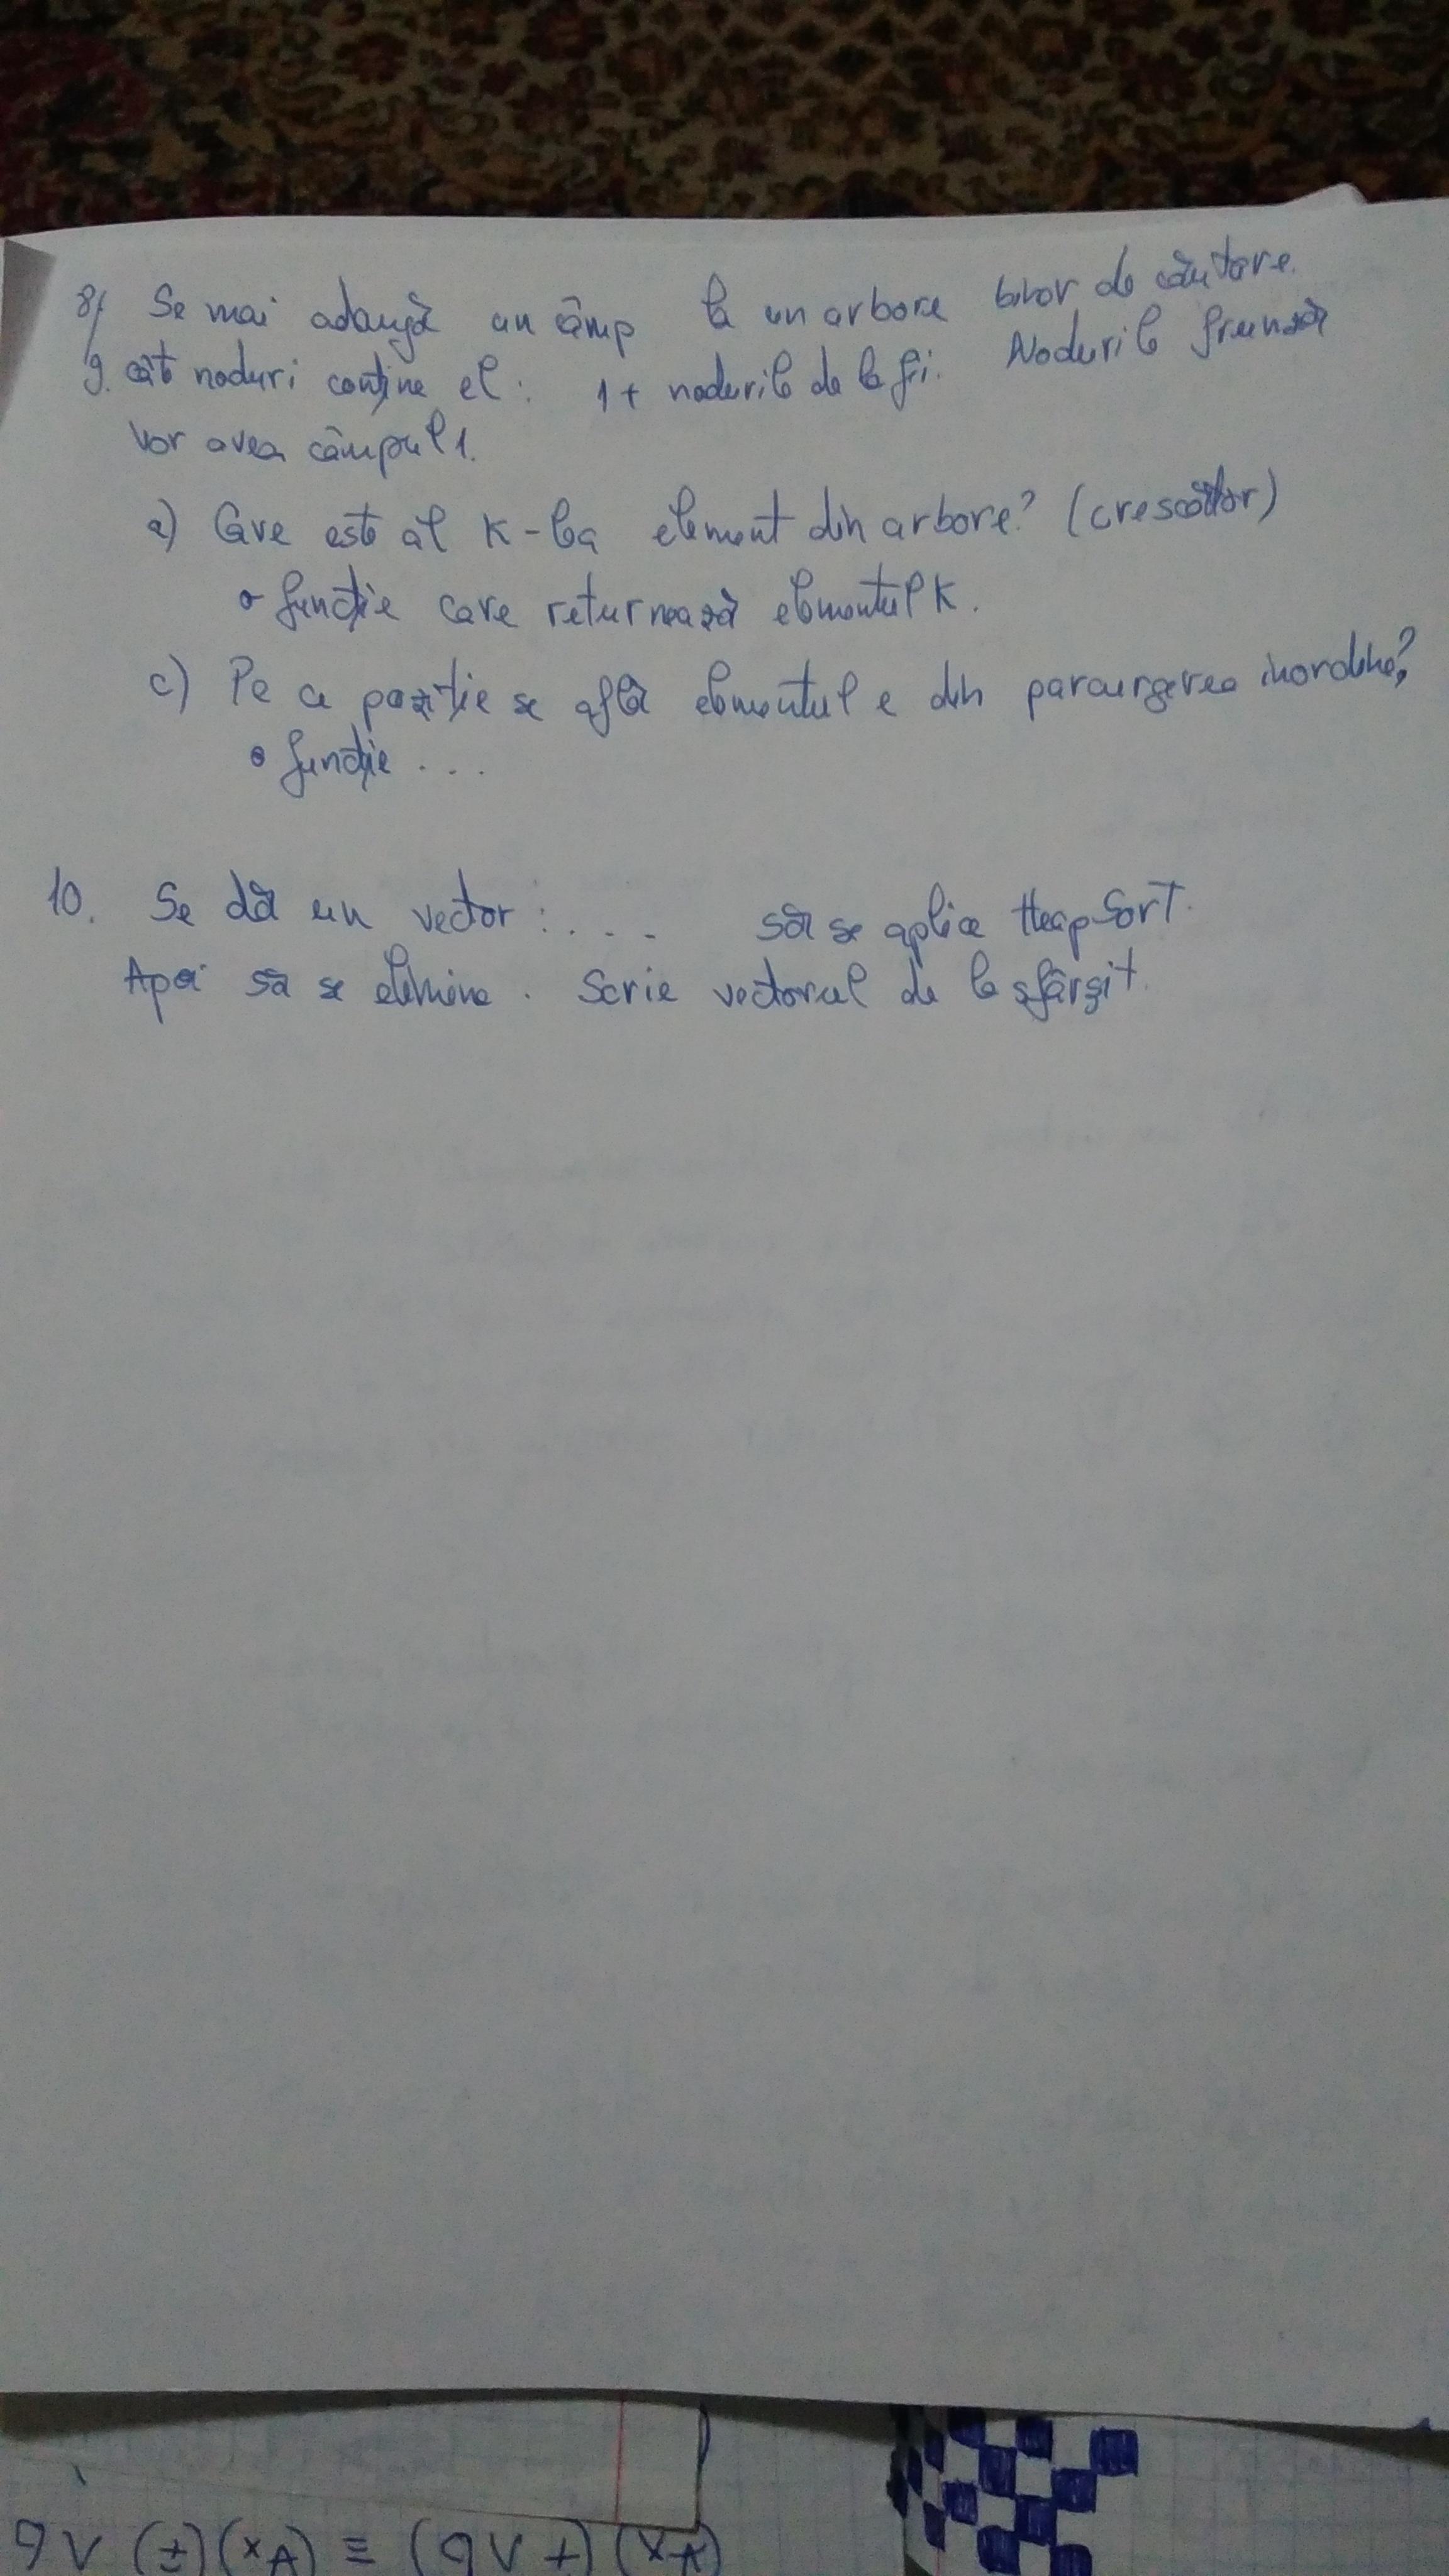 8/ Se mai adaugă un câmp la un arbore binar de căutare.
9. cât noduri conține el: 1+ nodurile de la fii. Nodurile frunză
vor avea câmpul 1.
a) Care este al K-lea element din arbore? (crescător)
• funcție care returnează elementul K.
c) Pe ce poziție se află elementul e din parcurgerea inordine?
• funcție ...
10. Se dă un vector: .... să se aplice HeapSort.
Apoi să se elimine. Scrie vectorul de la sfârșit.